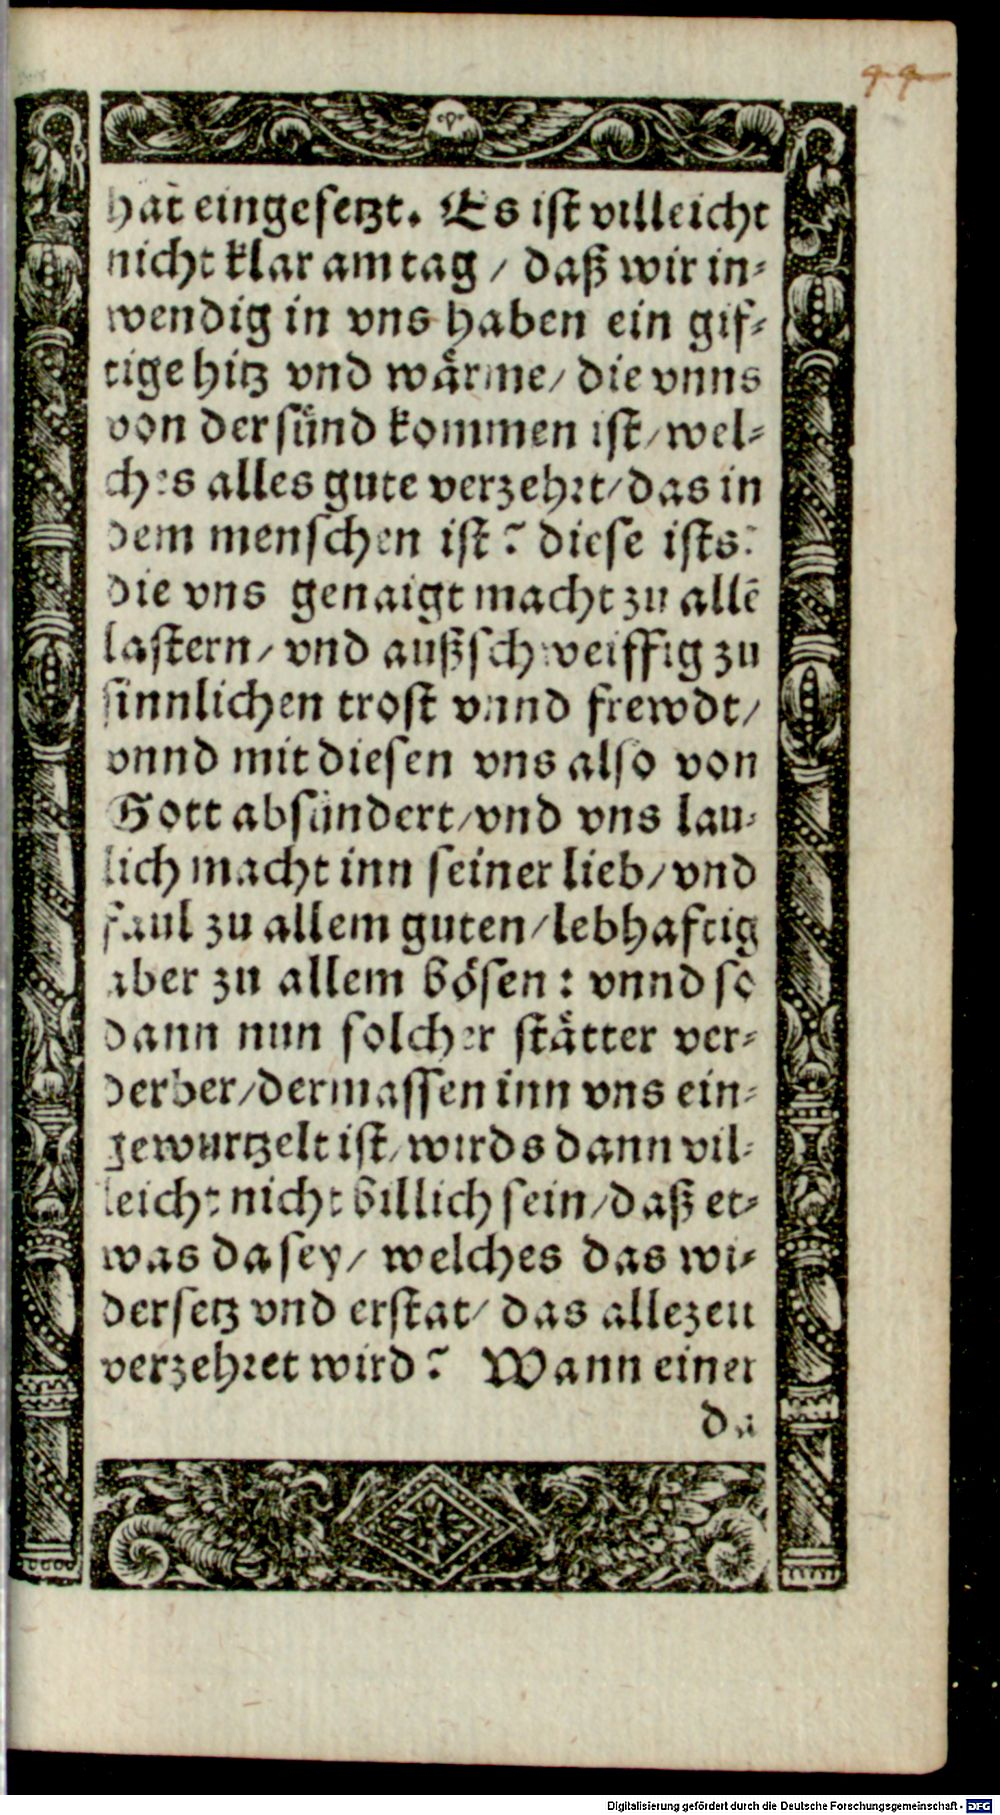 44
hat eingesetzt. Es ist villeicht
nicht klar am tag / daß wir in⸗
wendig in vns haben ein gif⸗
tige hitz vnd wärme / die vnns
von der sünd kommen ist / wel⸗
ches alles gute verzehrt / das in
dem menschen ist? diese ists:
die vns genaigt macht zu allē
lastern / vnd außschweiffig zu
sinnlichen trost vnnd frewdt /
vnnd mit diesen vns also von
Gott absündert / vnd vns lau⸗
lich macht inn seiner lieb / vnd
faul zu allem guten / lebhafftig
aber zu allem bösen: vnnd so
dann nun solcher stätter ver⸗
derber / dermassen inn vns ein⸗
gewurtzelt ist / wirds dann vil⸗
leicht nicht billich sein / daß et⸗
was da sey / welches das wi⸗
dersetz vnd erstat / das allezeit
verzehret wird? Wann einer
da
Digitalisierung gefördert durch die Deutsche Forschungsgemeinschaft - DFG